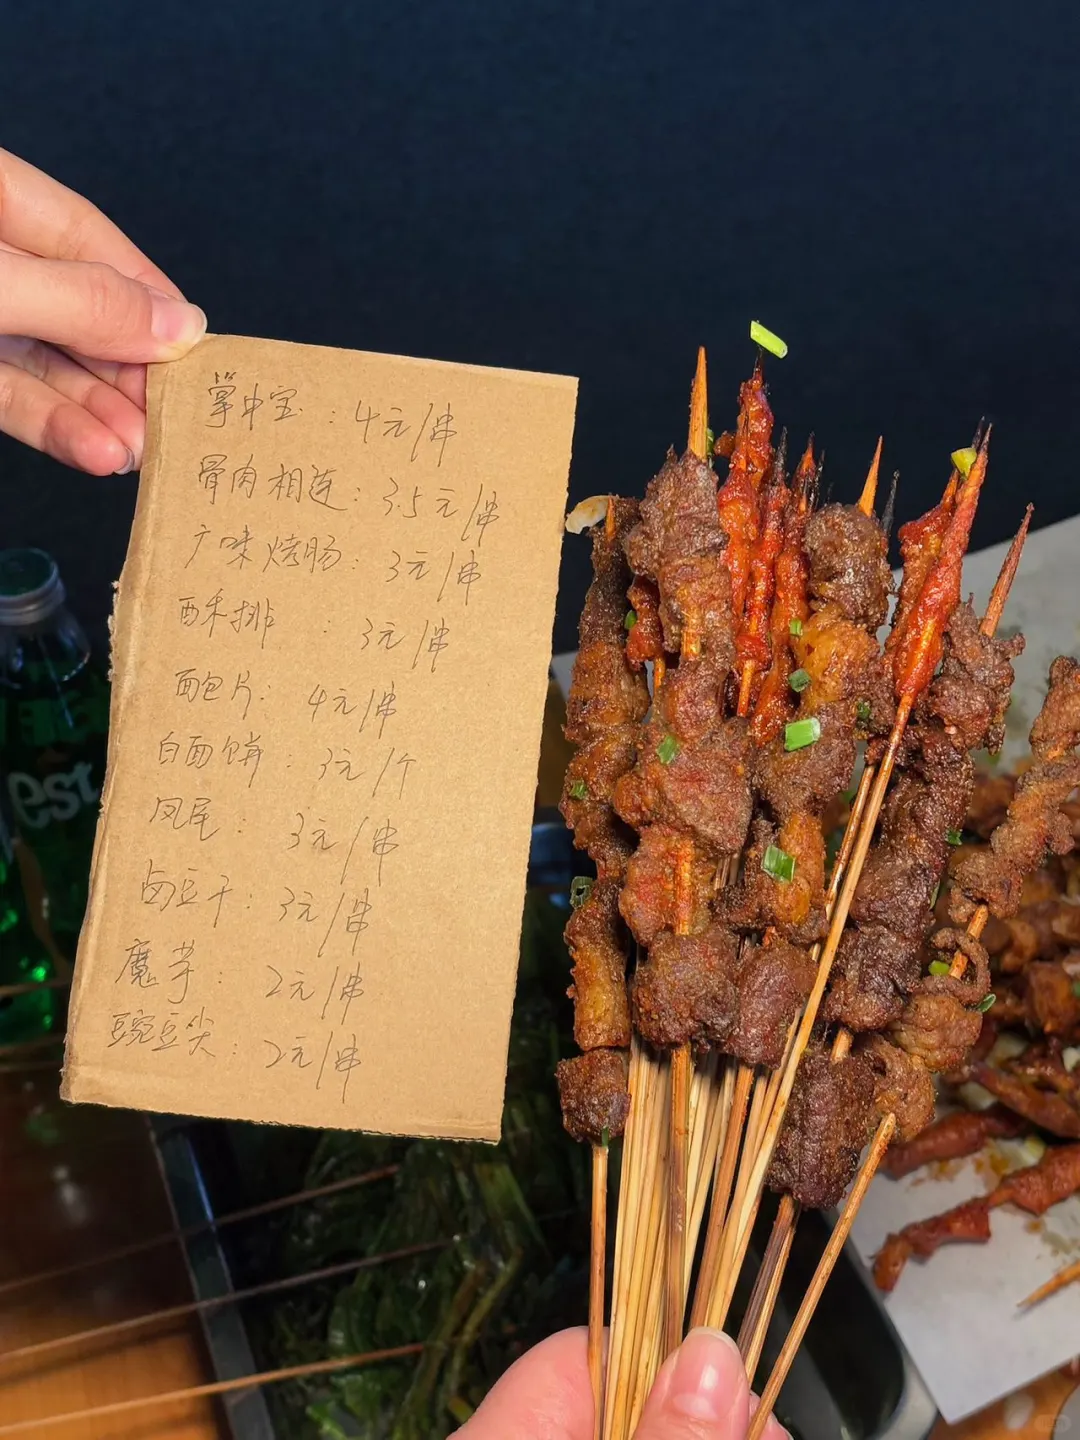 掌中宝：4元/串
骨肉相连：3.5元/串
广味烤肠：3元/串
酥排：3元/串
面包片：4元/串
白面饼：3元/个
凤尾：3元/串
卤豆干：3元/串
魔芋：2元/串
豌豆尖：2元/串
est